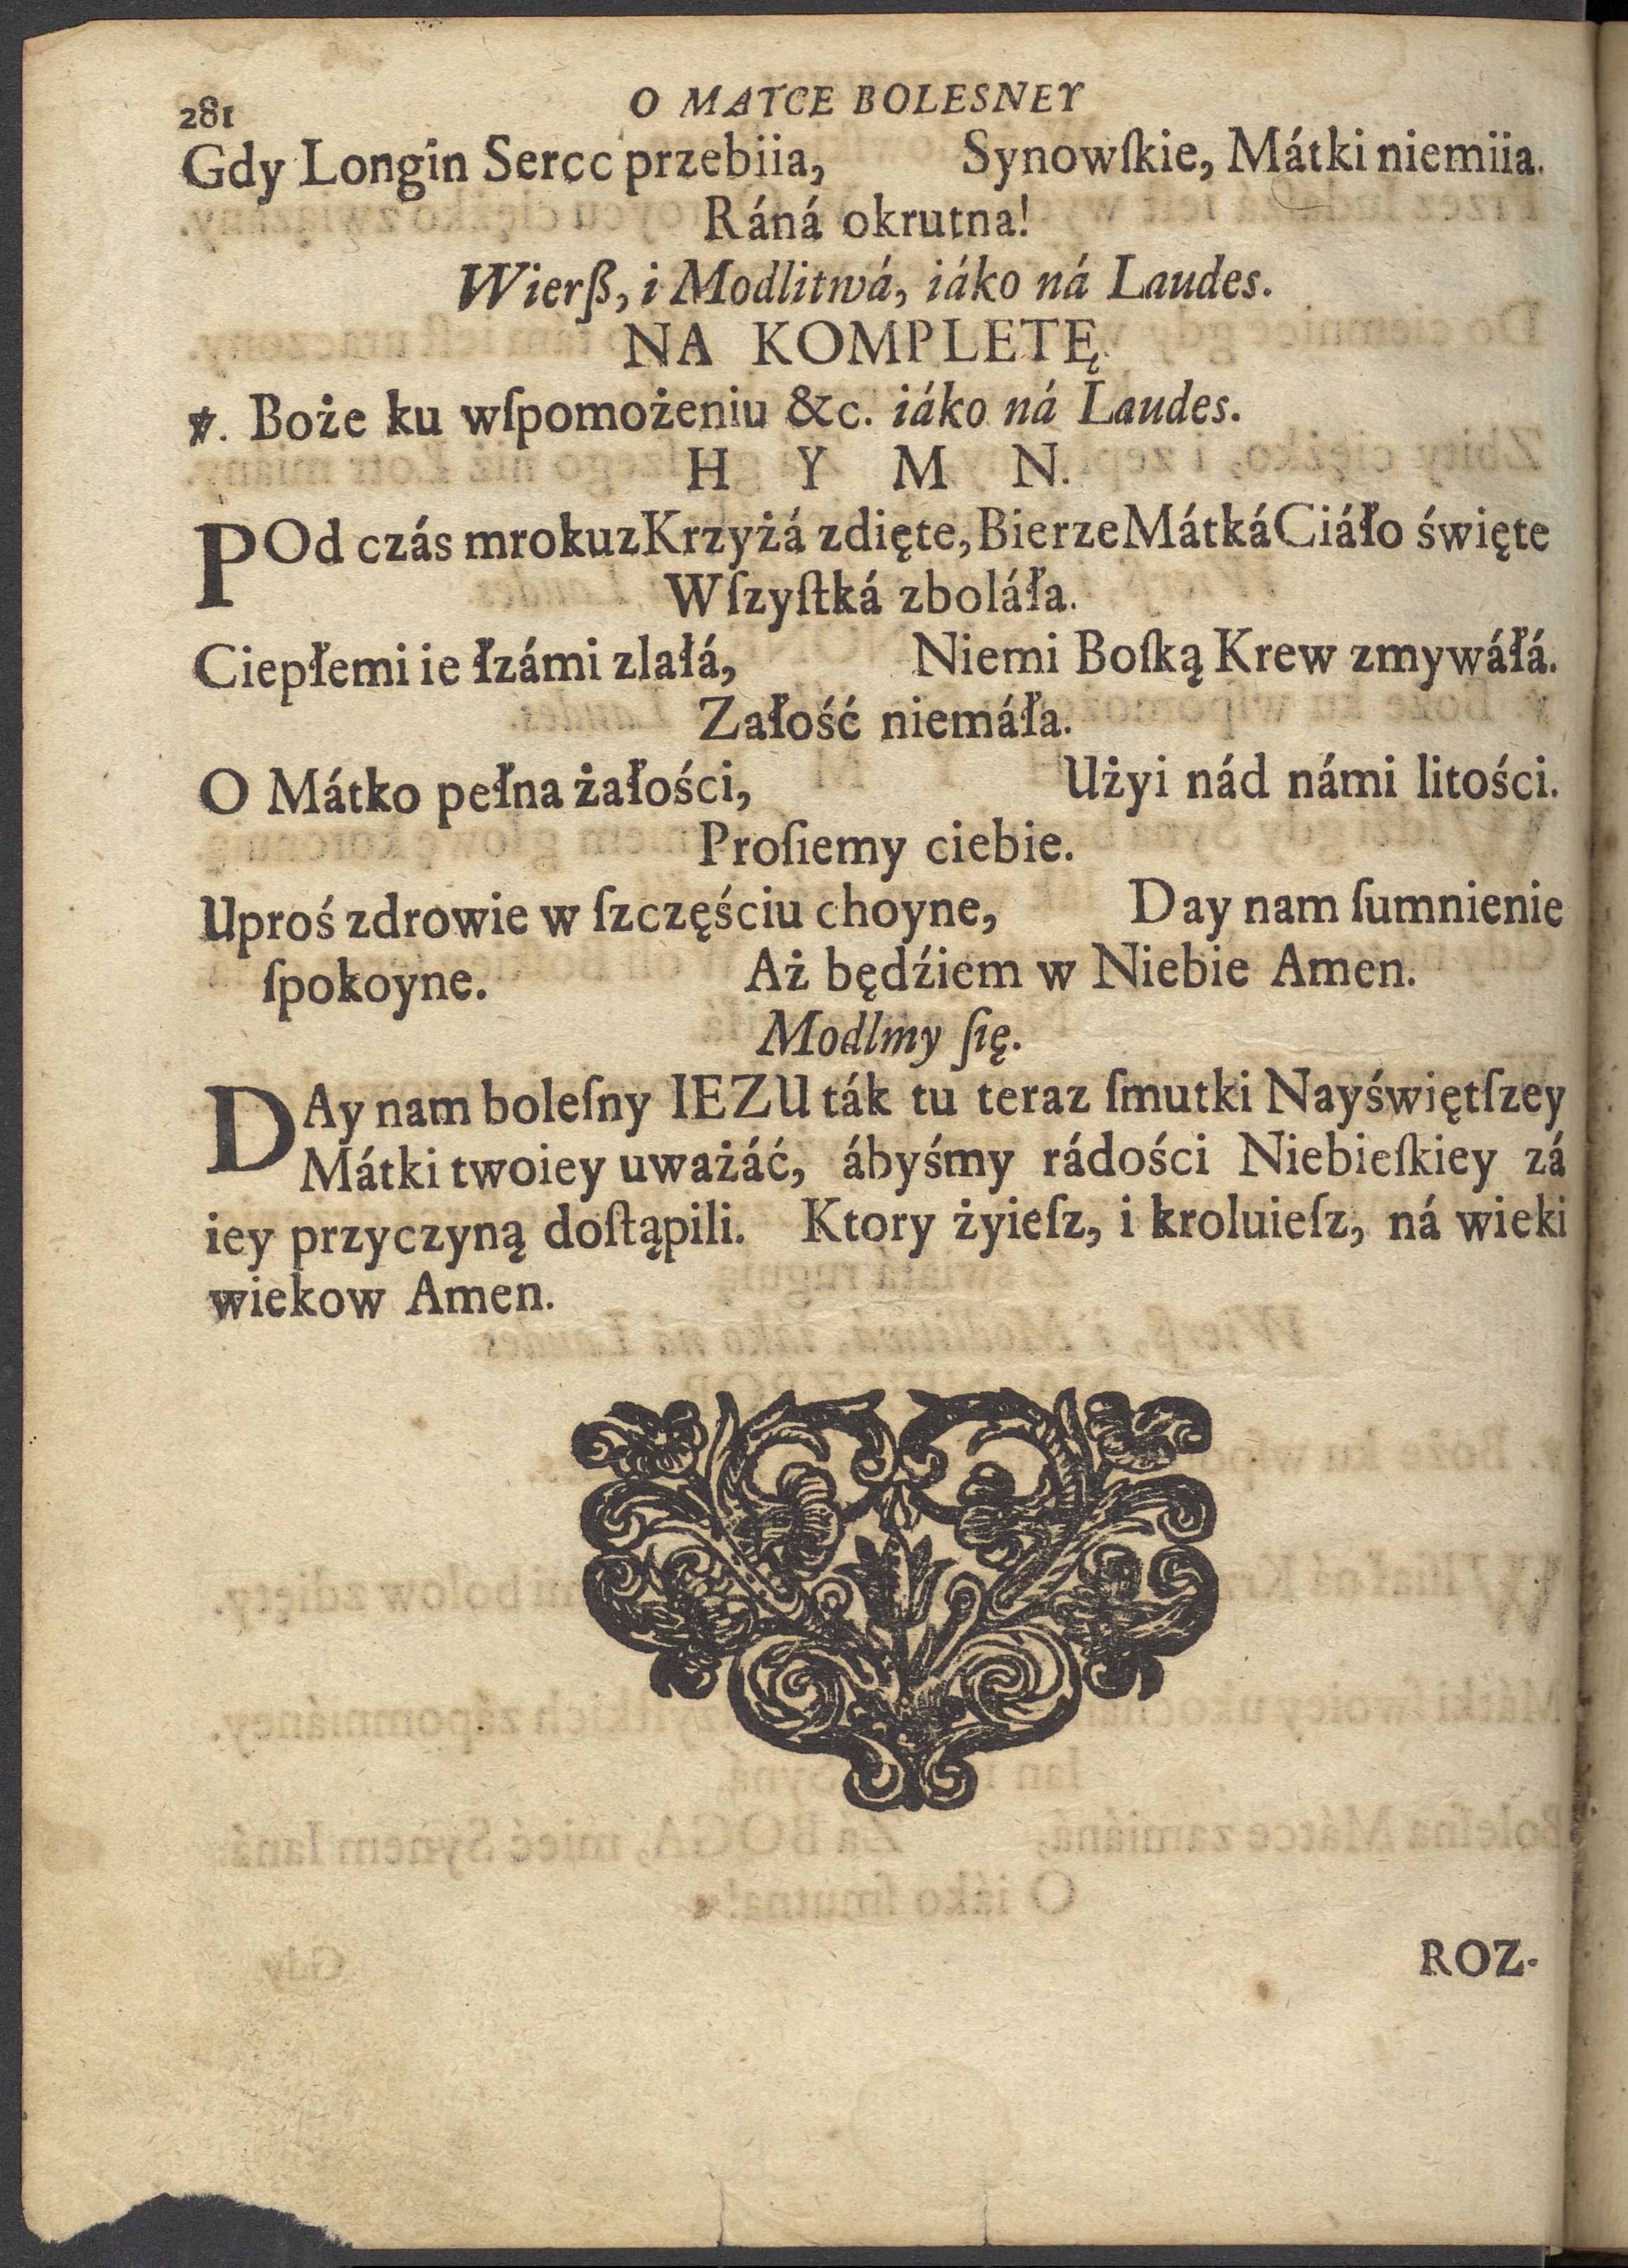 281 O MATCE BOLESNEY
Gdy Longin Serce przebiia, Synowſkie, Mátki niemiia.
Ráná okrutna!
Wierß, i Modlitwá, iáko ná Laudes.
NA KOMPLETĘ.
℣. Boże ku wſpomożeniu &c. iáko ná Laudes.
H Y M N.
POd czás mroku z Krzyżá zdięte, Bierze Mátká Ciáło święte
Wſzyſtká zboláła.
Ciepłemi ie łzámi zlałá, Niemi Boſką Krew zmywáłá.
Załość niemáła.
O Mátko pełna żałości, Użyi nád námi litości.
Proſiemy ciebie.
Uproś zdrowie w ſzczęściu choyne, Day nam ſumnienie
ſpokoyne. Aż będźiem w Niebie Amen.
Modlmy ſię.
DAy nam boleſny IEZU ták tu teraz ſmutki Nayświętſzey
Mátki twoiey uważáć, ábyśmy rádości Niebieſkiey zá
iey przyczyną doſtąpili. Ktory żyieſz, i kroluieſz, ná wieki
wiekow Amen.
ROZ-